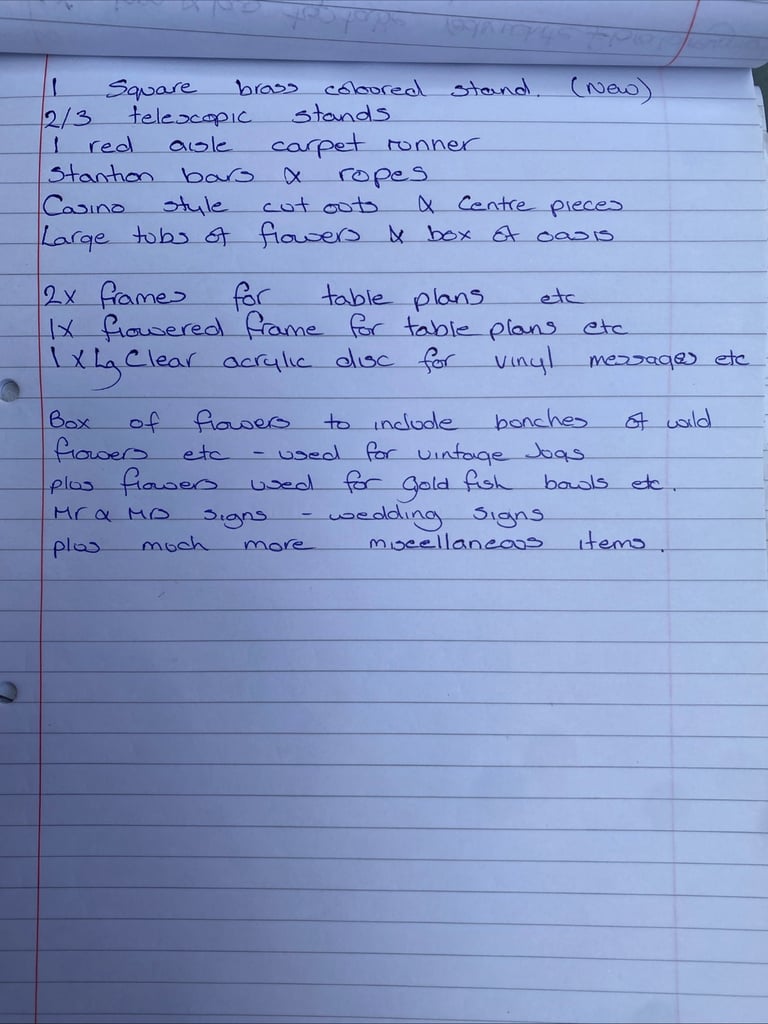 1 Square brass coloured stand. (New)
2/3 telescopic stands
1 red aisle carpet runner
Stantion bars & ropes
Casino style cut outs & Centre pieces
Large tubs of flowers & box of oasis
2x frames for table plans etc
1x flowered frame for table plans etc
1 x Lg Clear acrylic disc for vinyl messages etc
Box of flowers to include bunches of wild
flowers etc - used for vintage Jugs
plus flowers used for gold fish bowls etc.
Mr & Mrs signs - wedding signs
plus much more miscellaneous items.